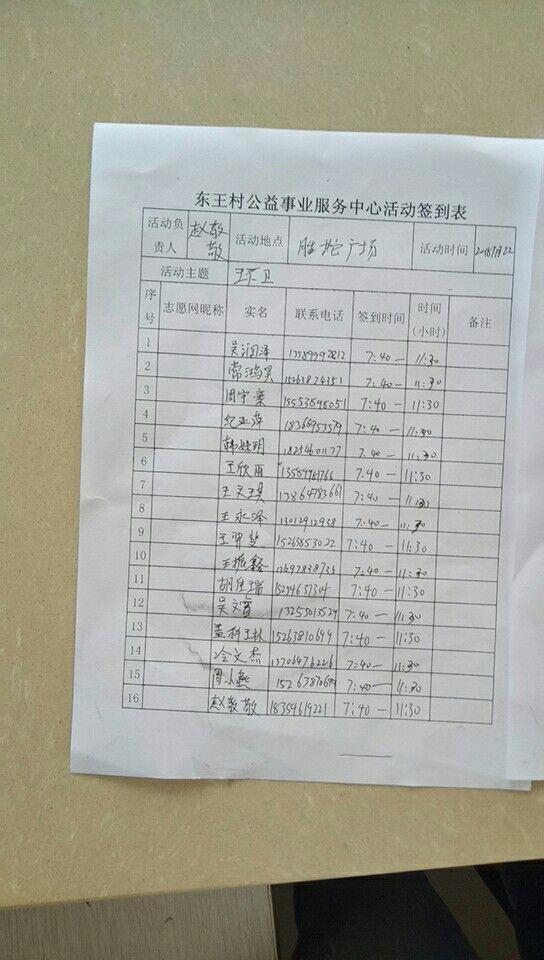 东王村公益事业服务中心活动签到表
活动负责人 赵敬敬 活动地点 胜坨广场 活动时间
活动主题 环卫
序号 志愿网昵称 实名 联系电话 签到时间 时间(小时) 备注
1 吴润泽 13589992812 7:40— 11:30
2 常鸿昊 15263874351 7:40— 11:30
3 周宇豪 15553895051 7:40— 11:30
4 纪亚萍 18366953579 7:40— 11:30
5 韩姝玥 18254601177 7:40— 11:30
6 王欣雨 13589961766 7:40— 11:30
7 13864783661 7:40— 11:30
8 王永泽 13012912938 7:40— 11:30
9 15263853022 7:40— 11:30
10 王振鑫 7:40— 11:30
11 7:40— 11:30
12 13255013529 7:40— 11:30
13 15263810699 7:40— 11:30
14 冷文杰 13706476226 7:40— 11:30
15 周小燕 7:40— 11:30
16 赵敬敬 18354619221 7:40— 11:30